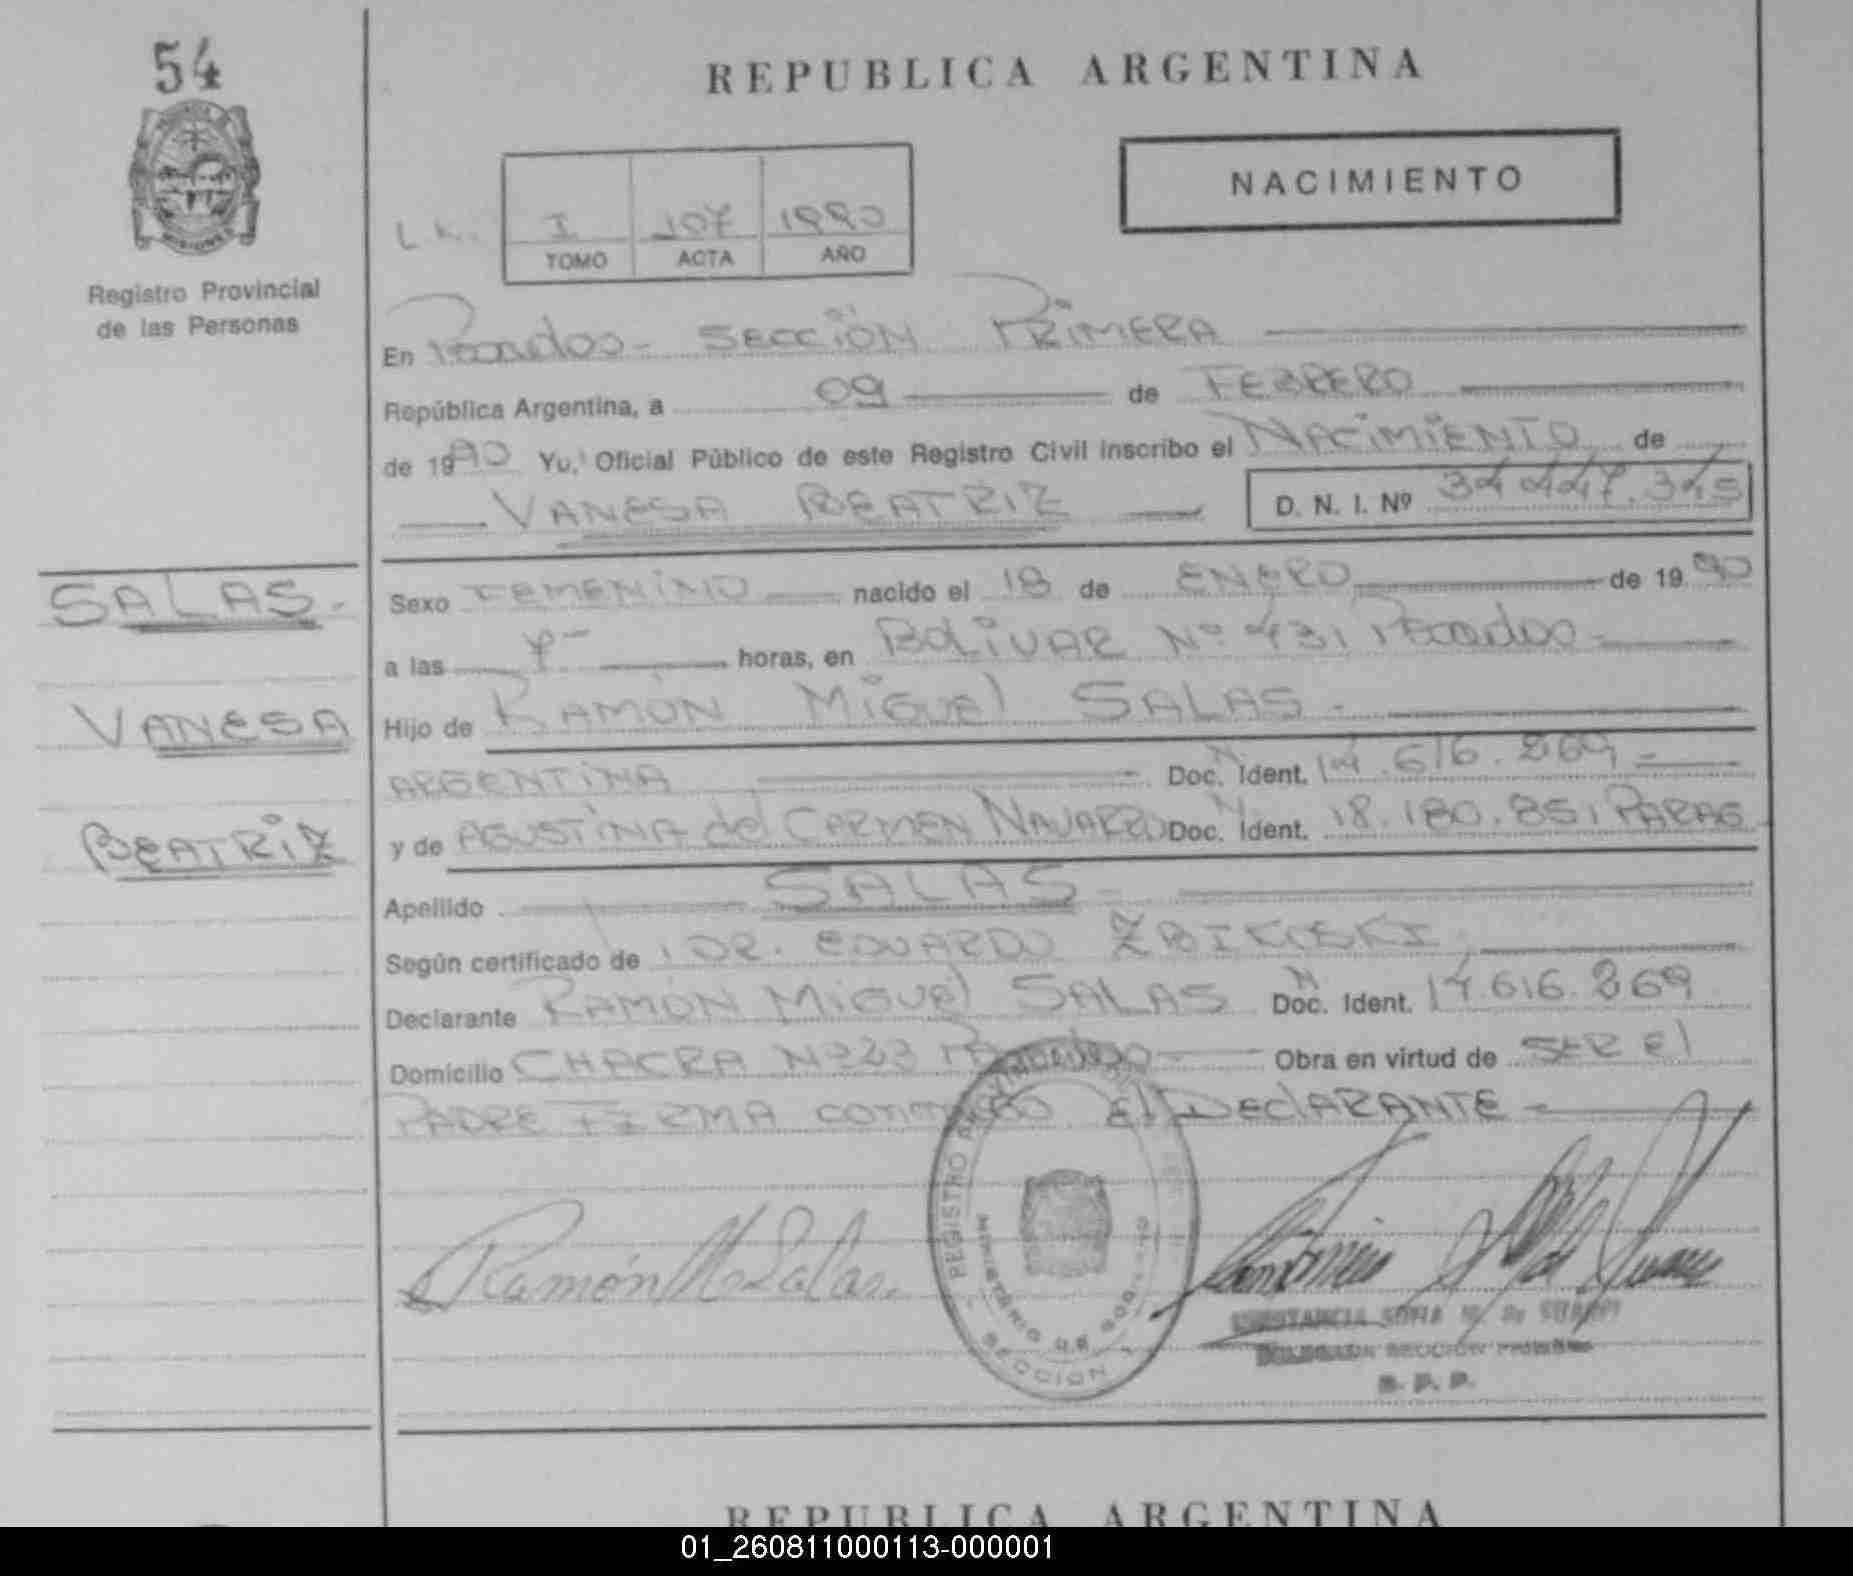 54
REPUBLICA ARGENTINA
NACIMIENTO
L.K.
I 107 1990
TOMO ACTA AÑO
Registro Provincial
de las Personas
En Posadas - SECCIÓN PRIMERA
República Argentina, a 09 de FEBRERO
de 1990 Yo, Oficial Público de este Registro Civil inscribo el NACIMIENTO de
VANESA BEATRIZ D. N. I. Nº 34.447.345
SALAS.-
Sexo FEMENINO nacido el 18 de ENERO de 1990
a las horas, en BOLIVAR Nº 431 Posadas-
VANESA
Hijo de RAMÓN MiGUEl SALAS.-
ARGENTINA Doc. Ident. 14.616.269-
BEATRIZ
y de AGUSTINA del CARMEN NAVARRO Doc. Ident. 18.180.851 PARAG
Apellido SALAS-
Según certificado de DR. EDUARDO ZBIKOSKI
Declarante RAMÓN MiGUEl SALAS Doc. Ident. 14.616.269
Domicilio CHACRA Nº 23 Posadas- Obra en virtud de SER El
PADRE FIRMA conmigo El DEClARANTE-
Ramón M. Salas.
REGISTRO
MINISTERIO DE GOBIERNO
SECCION 1
CONSTANCIA SOFIA
DELEGADA SECCION PRIMERA
R. P. P.
REPUBLICA ARGENTINA
01_260811000113-000001